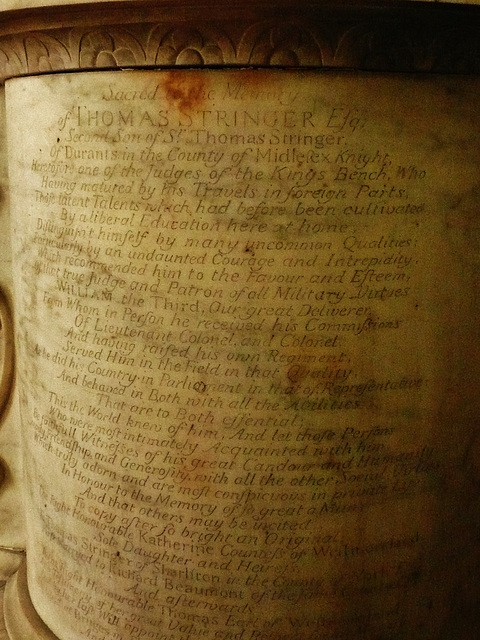 Sacred to the Memory
of THOMAS STRINGER Esq;
Second Son of Sr. Thomas Stringer,
Of Durants in the County of Midlesex Knight,
Heretofore one of the Judges of the Kings Bench, Who
Having matured by his Travels in foreign Parts,
Those latent Talents which had before been cultivated
By a liberal Education here at home,
Distinguisht himself by many uncommon Qualities:
Particularly by an undaunted Courage and Intrepidity,
Which recommended him to the Favour and Esteem,
true Judge and Patron of all Military Virtues
WILLIAM the Third, Our great Deliverer
From Whom in Person he received his Commissions
Of Lieutenant Colonel, and Colonel
And having raised his own Regiment,
Served Him in the Field in that Quality,
As he did his Country in Parliament in that of Representative
And behaved in Both with all the Abilities
That are to Both essential;
This the World knew of him, And let those Persons
Who were most intimately Acquainted with him
Be faithfull Witnesses of his great Candour and Humanity
and Generosity, with all the other Social Virtues
truly adorn and are most conspicuous in private Life
In Honour to the Memory of so great a Man
And that others may be incited
To copy after so bright an Original
The Right Honourable Katherine Countess of Westmorland
Sole Daughter and Heiress
Thomas Stringer of Sharlston in the County of York
to Richard Beaumont of the same County
And afterwards
Right Honourable Thomas Earl of
of her great Value and
Last Will appoint